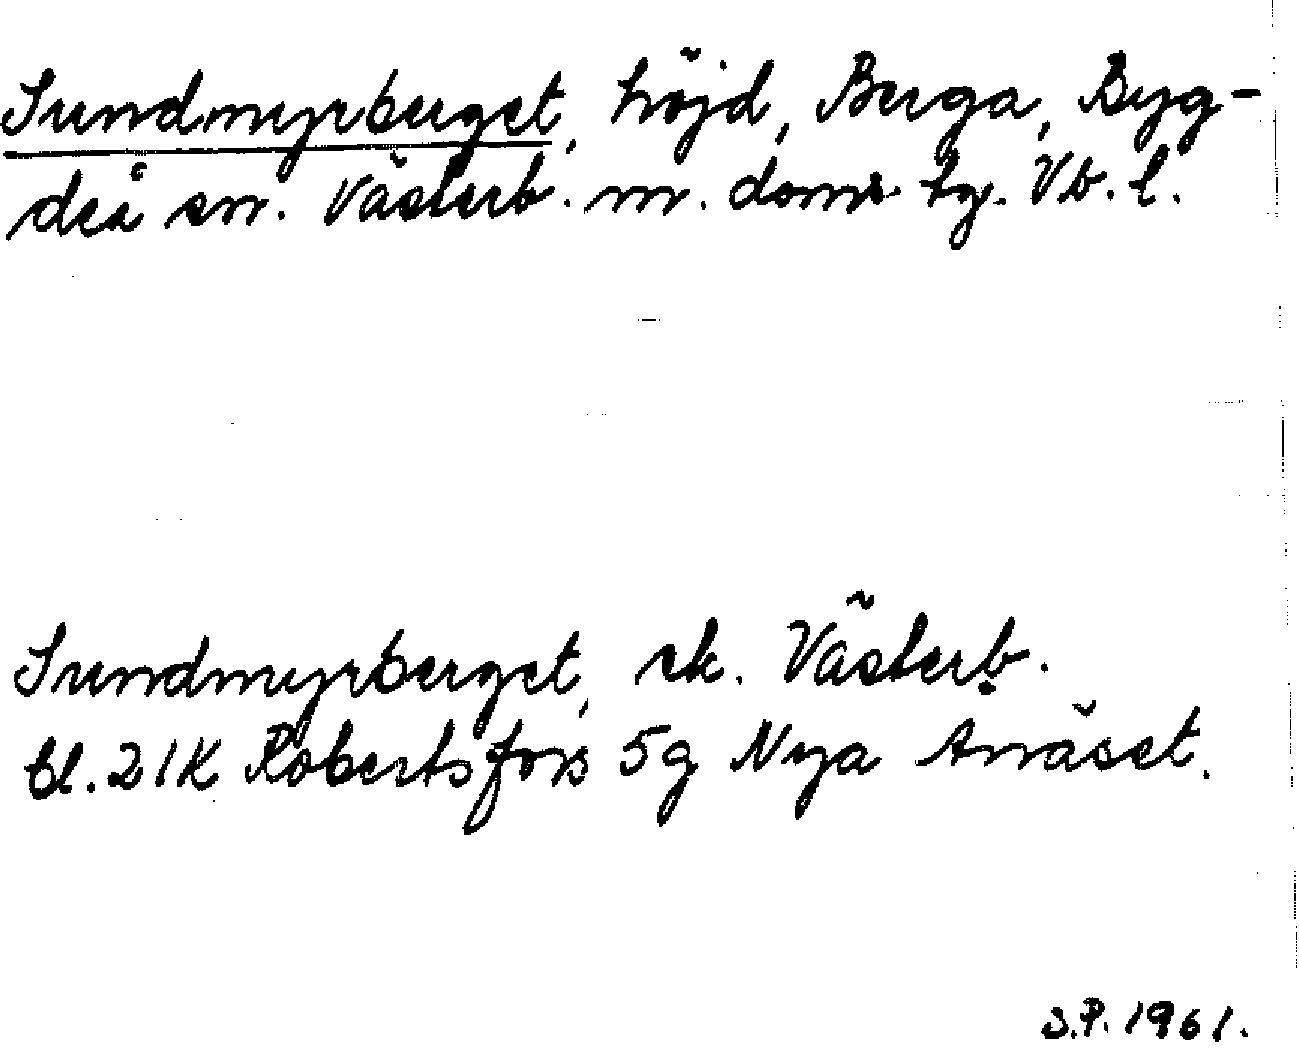 Sundmyrberget, höjd, Berga, Byg-
deå sn. Västerb. m. doms. tg. Vb. l.
Sundmyrberget, ek. Västerb.
bl. 21K Robertsfors 5g Nya Anäset.
S.P. 1961.